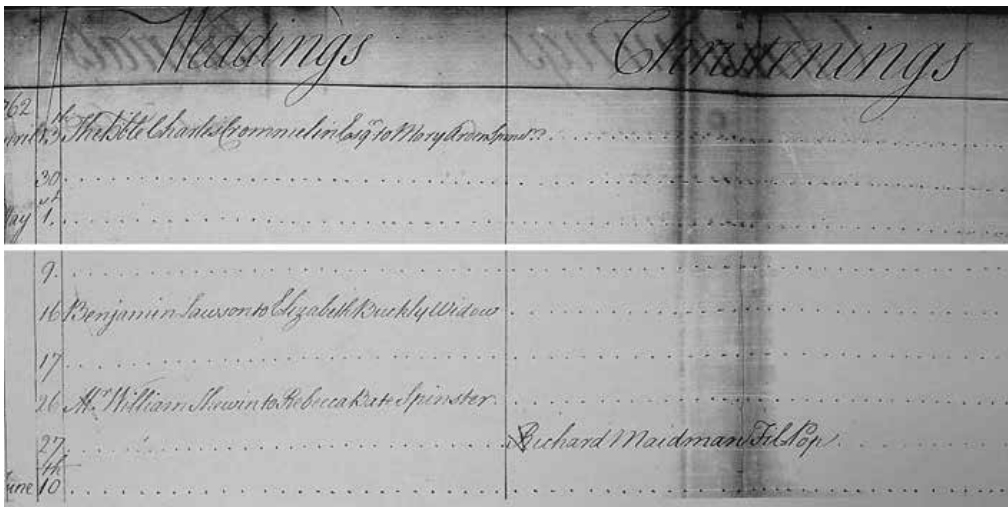 Weddings Christenings
762
th
13 The Charles Crommelin Esqr. to Mary Spinster
30
st
May 1.
9.
16 Benjamin Lawson to Elizabeth Buckly Widow
17
26 Mr. William Shewin to Rebecca Bate Spinster.
27. Richard Maidman Fil Pop.
4th
June 10